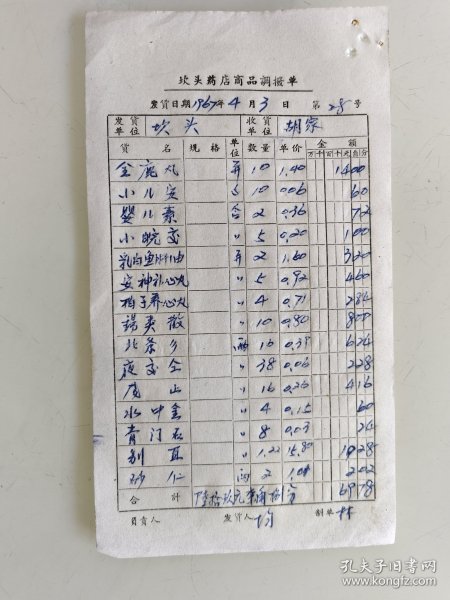 坎头药店商品调拨单
发货日期1967年4月3日 第28号
发货单位 坎头 收货单位 胡家
货名 规格 单位 数量 单价 金额
万 千 百 十 元 角 分
全鹿丸 10 1.40 1400
小儿安 10 0.06 60
婴儿素 合 2 0.36 72
小 5 0.20 100
乳白鱼肝油 2 1.60 320
安神补心丸 〃 5 0.92 460
柏子养心丸 〃 4 0.71 284
〃 10 0.80 800
两 16 0.39 624
夜交全 〃 38 0.06 228
山 〃 16 0.26 416
水中金 〃 4 0.15 60
青 石 〃 8 0.03 24
别直 〃 1.22 15.80 1928
砂仁 两 2 1.01 202
合计 陆拾玖元 角 分 6978
负责人 发货人 均 制单 林
孔夫子旧书网
www.kongfz.com